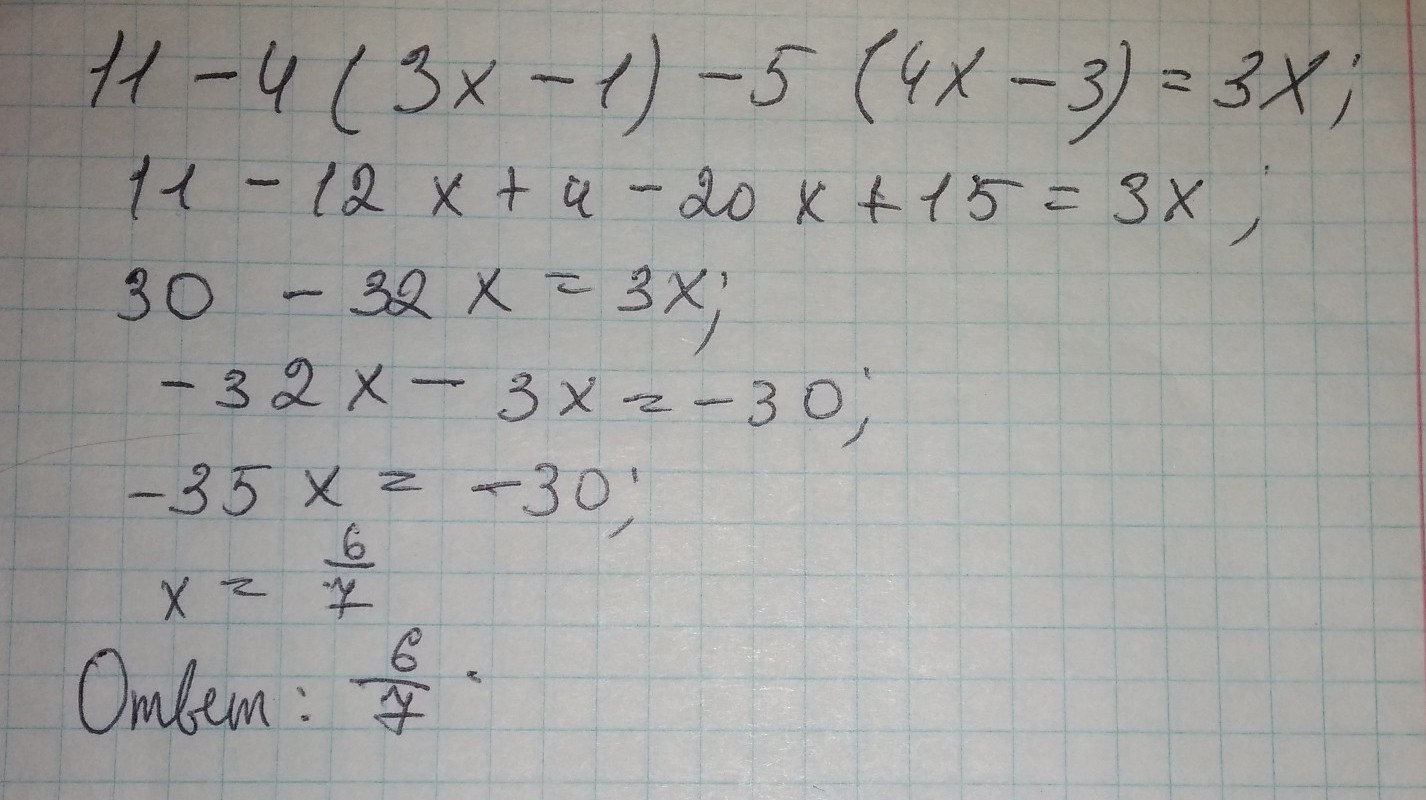 11 - 4 ( 3x - 1 ) - 5 ( 4x - 3 ) = 3x ;
11 - 12 x + 4 - 20 x + 15 = 3x ;
30 - 32 x = 3x;
- 32 x - 3 x = - 30;
- 35 x = - 30;
x = 6/7
Ответ: 6/7 .